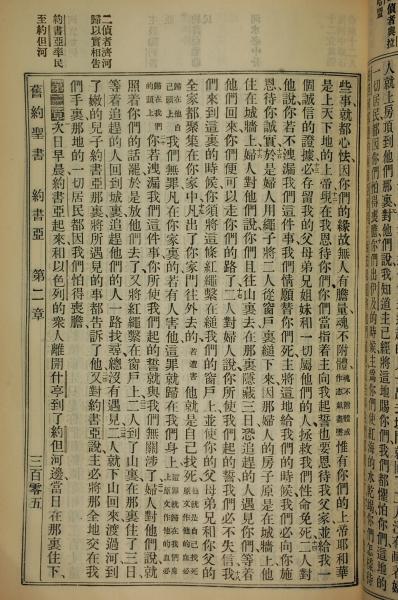 人就上房頂到他們那裏對他們說我知道主已經將這地賜你們我們都懼怕你們這地的
一切居民都因你們怕得喪膽你們出伊及的時候主為你們使紅海的水乾
些事就都心怯因你們的緣故無人有膽量魂不附體魂不附體或作志氣盡墮惟有你們的上帝耶和華
是上天下地的上帝現在我恩待你們你們當指着主向我起誓也要恩待我父家並給我一
個誠信的證據必存留我的父母弟兄姐妹和一切屬他們的人拯救我們性命免死二人對
他說你若不洩漏我們這件事我們情願替你們死主將這地給我們的時候我們必向你施
恩待你誠實於是婦人用繩子將二人從窗戶裏縋下來因那婦人的房子原是在城牆上他
住在城牆上婦人對他們說你們且往山裏去在那裏隱藏三日恐追趕的人遇見你們等着
他們回來你們便可以走你們的路了二人對婦人說你所使我們起的誓我們必不失信我
們來到這裏的時候你須將這條紅繩繫在縋我們的窗戶上並使你的父母弟兄和你父的
全家都聚集在你家中凡出了你家門往外去的若遭害他就是自己找死
歸在他自己頭上我們無罪凡在你家裏的若有人害他這罪就歸在我們身上這罪就歸在我們身上原文作他的血必
歸在我們的頭上你若洩漏我們這件事你所使我們起的誓就與我們無關涉了婦人對他們說就
照着你們的話罷於是放他們去了又將紅繩繫在窗戶上二人到了山裏在那裏住了三日
等着追趕的人回到城裏追趕他們的人一路找尋總沒有遇見二人就下山回來渡過河到
了嫩的兒子約書亞那裏將所遇見的事都告訴了他又對約書亞說主必將那全地交在我
們手裏那地的一切居民都因我們怕得喪膽
第三章次日早晨約書亞起來和以色列的衆人離開什亭到了約但河邊當日在那裏住下
舊約聖書 約書亞 第二章 三百零五
二偵者濟河
歸以實相告
約書亞率民
至約但河